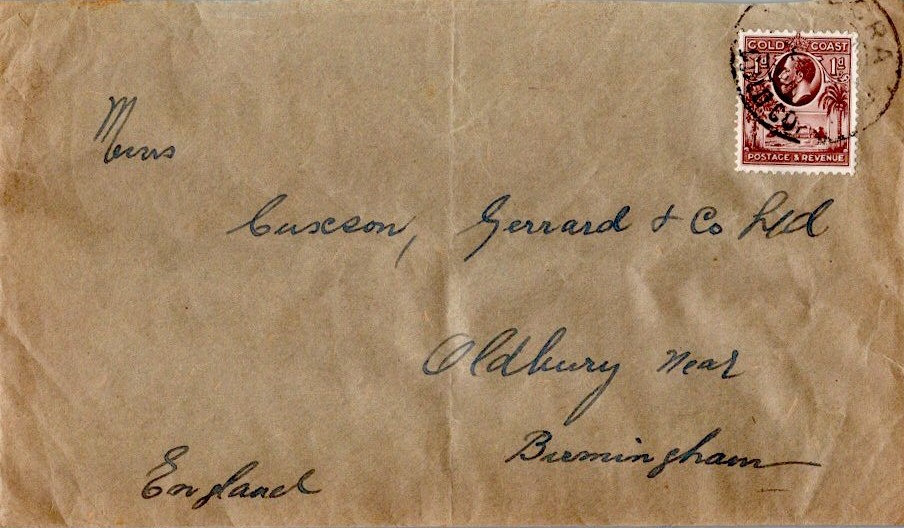 GOLD COAST
1d 1d
POSTAGE & REVENUE
CCRA
Messrs
Cuxson, Gerrard & Co Ltd
Oldbury near
Birmingham
England